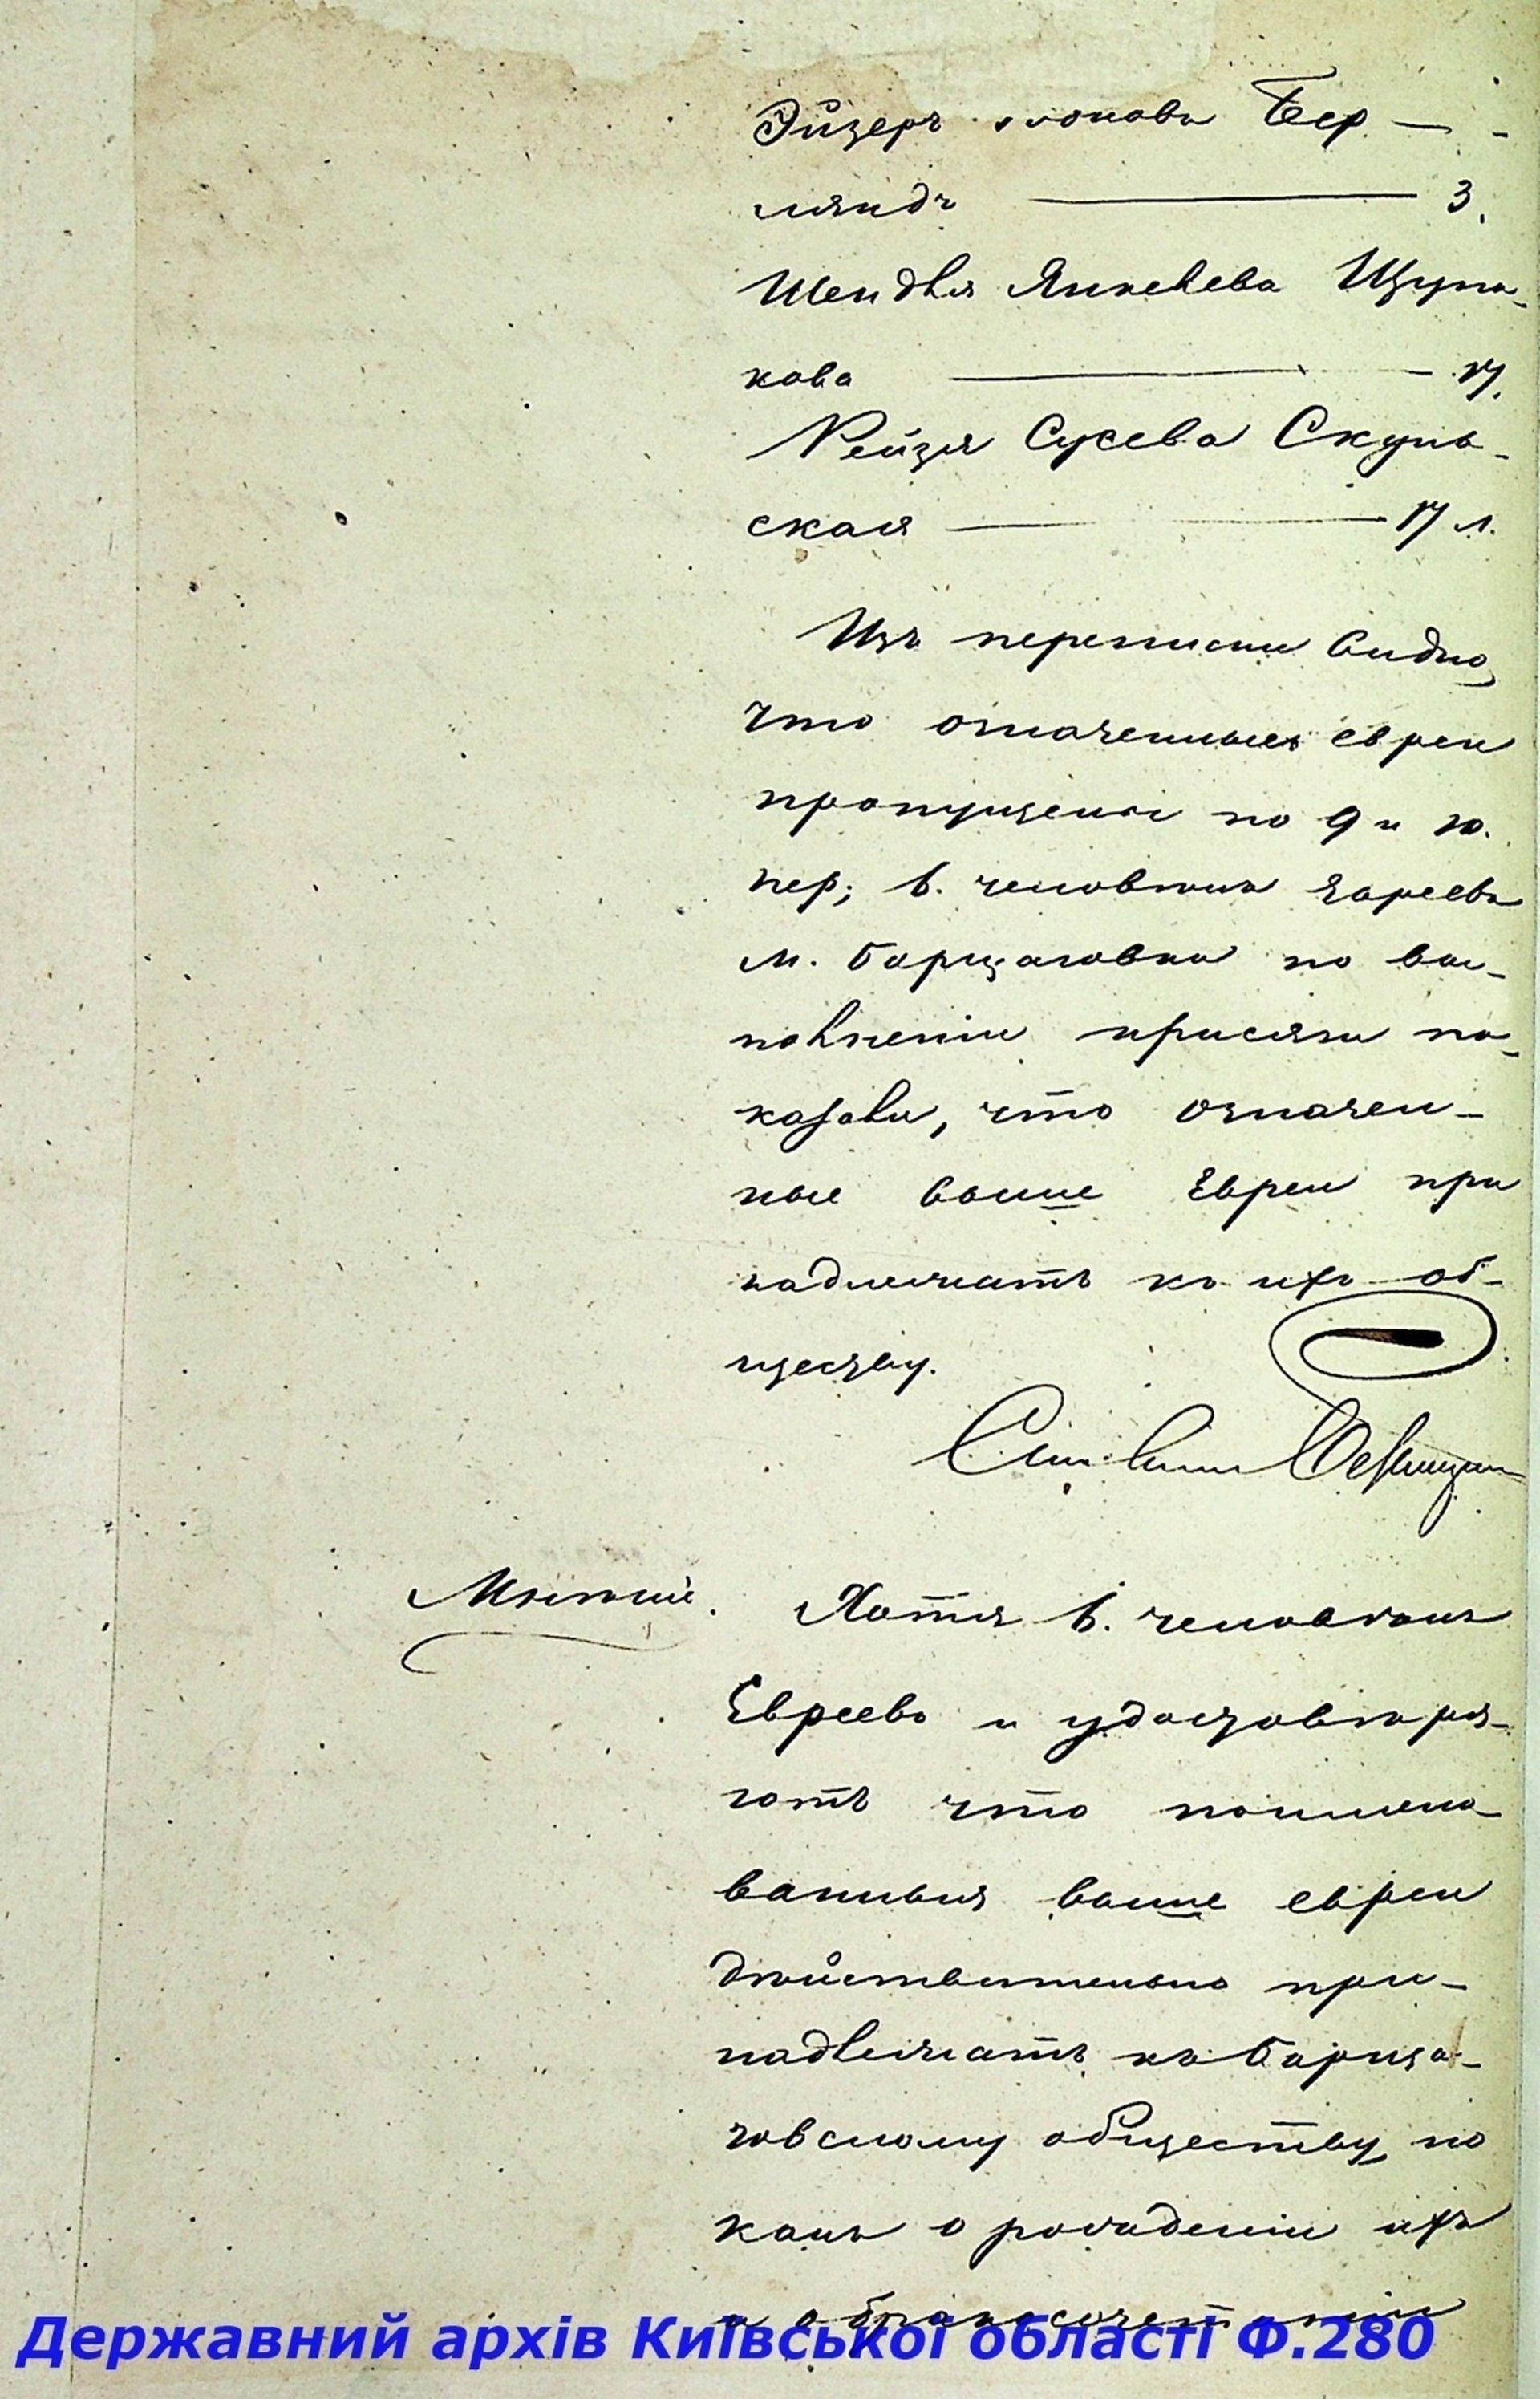 Эйзеръ Бер —
ляндъ — 3.
Шендля Янкелева Щупа-
кова — 17.
Рейзя Сусева Скуль-
ская — 17 л.
Изъ переписки видно,
что означенные евреи
пропущены по 9 и 10.
пер; 6. человѣкъ Евреевъ
м. Борщаговки по вы-
полненіи присяги по-
казали, что означен-
ные выше Евреи при
надлежатъ къ ихъ об-
ществу.
Мнѣніе. Хотя 6. человѣкъ
Евреевъ и удостовѣря-
ютъ что поимено-
ванныя выше евреи
дѣйствительно при-
надлежатъ къ Борща-
говскому обществу, но
какъ о рожденіи ихъ
и о бракосочетаніи
Державний архів Київської області Ф.280